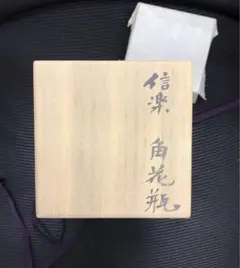 信楽 角花瓶